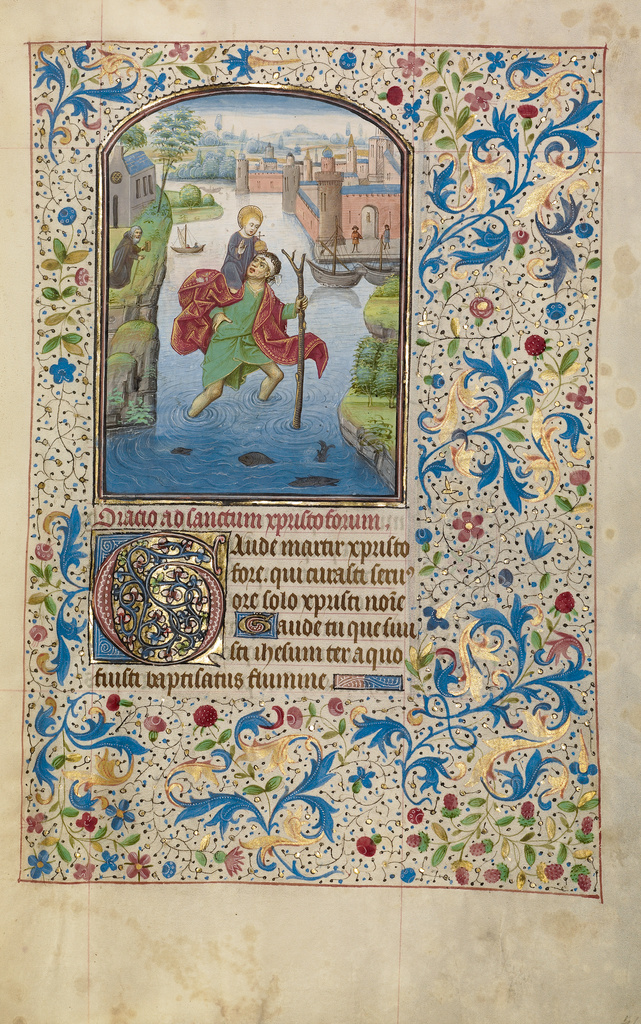 Oracio ad sanctum xpristoforum.
Gaude martir xpristo
fore. qui curasti seruꝰ
ore solo xpristi noīe
Gaude tu que sun
sti ihesum ter a quo
fuisti baptisatus flumine.